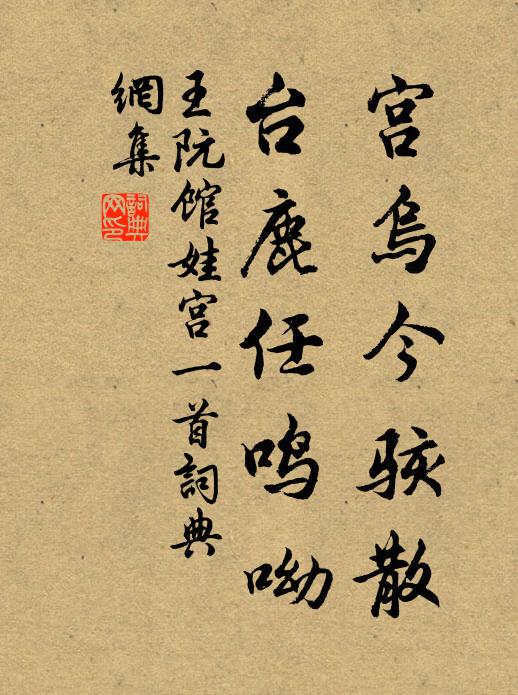 宫乌今駭散
台鹿任鸣呦
王阮館娃宫一首詞典
網集
詞典网印